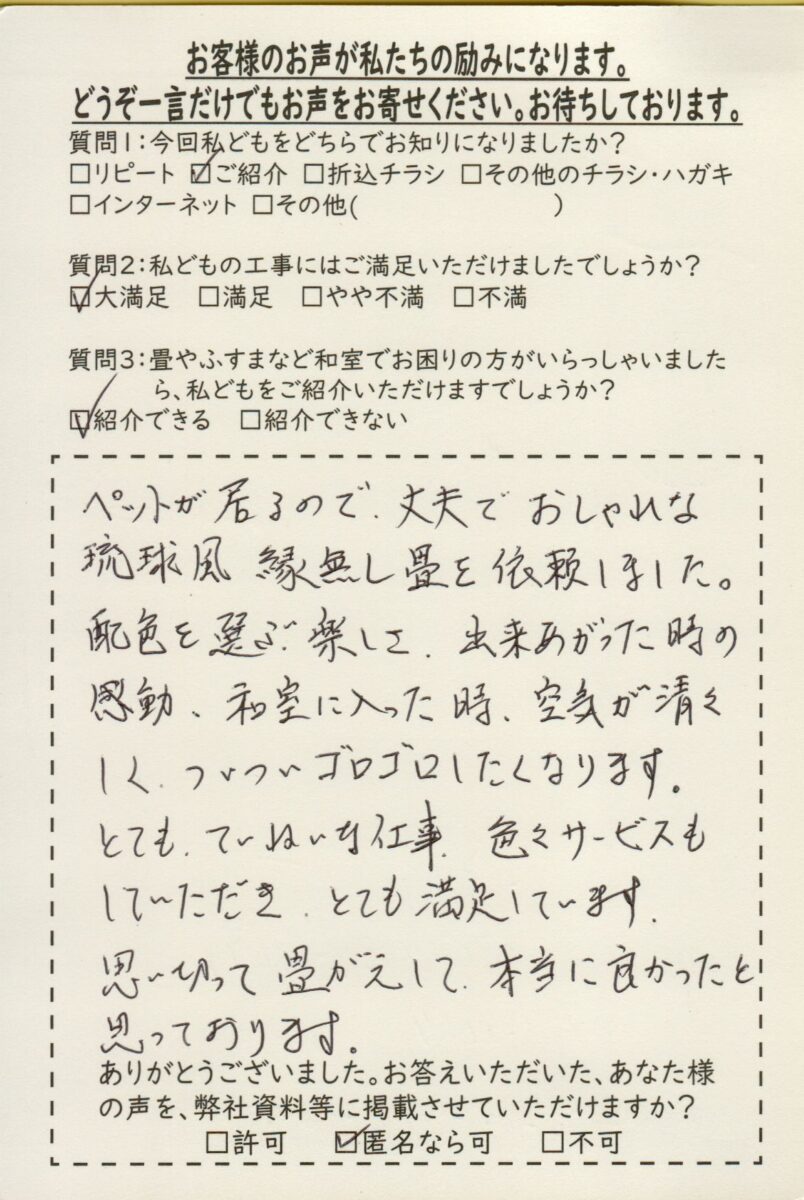 お客様のお声が私たちの励みになります。
どうぞ一言だけでもお声をお寄せください。お待ちしております。
質問1:今回私どもをどちらでお知りになりましたか?
□リピート ☑ご紹介 □折込チラシ □その他のチラシ・ハガキ
□インターネット □その他( )
質問2:私どもの工事にはご満足いただけましたでしょうか?
☑大満足 □満足 □やや不満 □不満
質問3:畳やふすまなど和室でお困りの方がいらっしゃいました
ら、私どもをご紹介いただけますでしょうか?
☑紹介できる □紹介できない
ペットが居るので、丈夫でおしゃれな
琉球風 縁無し畳を依頼しました。
配色を選ぶ楽しさ、出来あがった時の
感動、和室に入った時、空気が清々
しく、ついついゴロゴロしたくなります。
とても、ていねいな仕事、色々サービスも
していただき、とても満足しています。
思い切って畳がえして、本当に良かったと
思っております。
ありがとうございました。お答えいただいた、あなた様
の声を、弊社資料等に掲載させていただけますか?
□許可 ☑匿名なら可 □不可